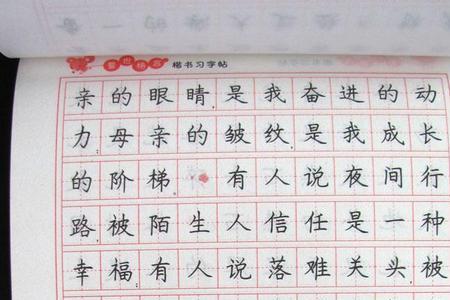 楷书习字帖
亲的眼睛是我奋进的动
力,母亲的皱纹是我成长
的阶梯。有人说夜间行
路,被陌生人信任是一种
幸福有人说落难关头,被